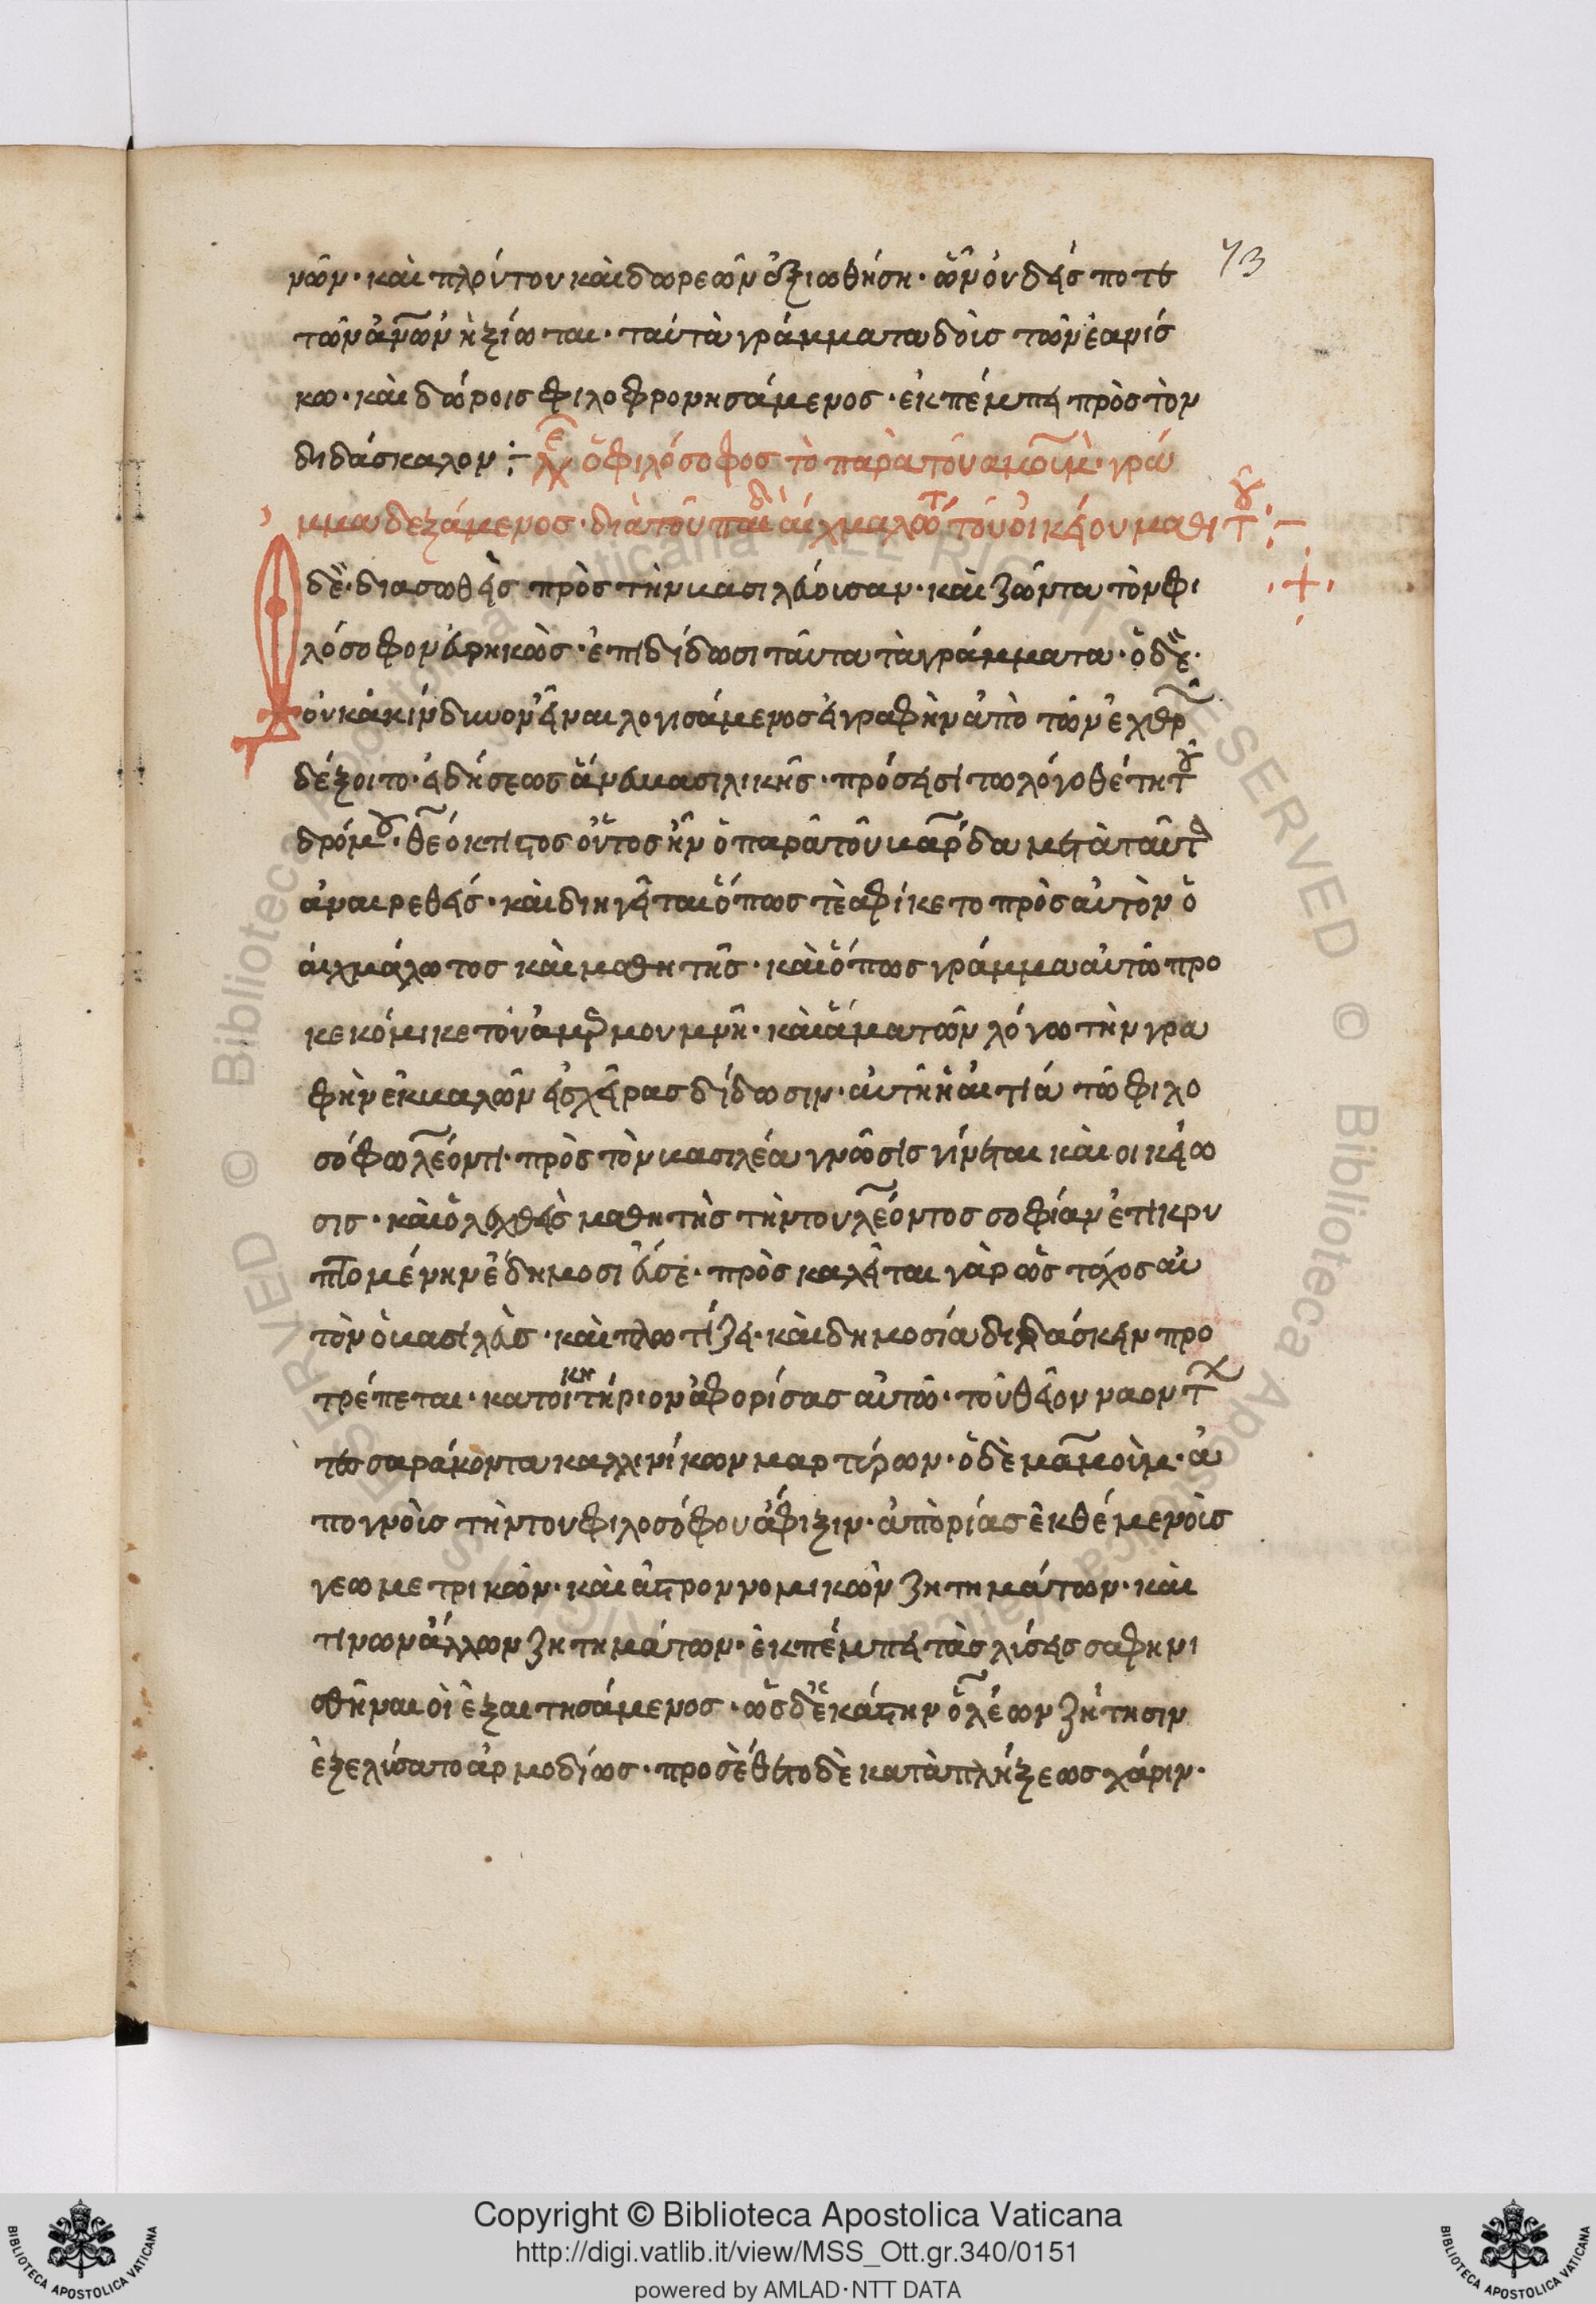 73
νῶν· καὶ πλούτου καὶ δωρεῶν ἀξιωθήση· ὧν οὐδείς ποτε
τῶν ἀν̅ων ἠξίωται· ταύτὰ γράμματα δοὺς τῶν εανίσ
κω· καὶ δώροις φιλοφρονησάμενος· ἐκπέμπει πρὸς τὸν
διδάσκαλον ÷ λχ ε ὁ φιλόσοφος τὸ παρὰ τοῦ αμουμ· γρά
μμα δεξάμενος· διὰ τοῦ παδὶ αἰχμαλώτ τοῦ οἰκείου μαθιτ ÷
ὁ δὲ· διασωθεὶς πρὸς τὴν βασιλεύουσαν· καὶ ζῶντα τὸν φι
λόσοφον εὑρηκὼς· ἐπιδίδωσι ταῦτα τὰ γράμματα· ὁ δὲ·
οὐκ ἀκίνδυνον εἶναι λογισάμενος εἰ γραφὴν ἀπὸ τῶν ἐχθρ
δέξοιτο· εἰδήσεως ἄνευ βασιλικῆς· πρόσεισι τω λόγοθέτη τ
δρόμ· θεόκτιστος οὗτος ἦν ὁ παρὰ τοῦ βάρδα μετὰ ταῦτ
ἀναιρεθείς· καὶ διηγεῖται ὅπως τὲ αφίκετο πρὸς αὐτὸν ὁ
αἰχμάλωτος καὶ μαθητῆς· καὶ ὅπως γράμμα αὐτῶ προ
κεκόμικε τοῦ ἀμερμουμνῆ· καὶ ἅμα τῶν λόγω τὴν γρα
φὴν ἐκβαλῶν εἰς χεῖρας δίδωσιν· αὐτὴ ἡ αἰτία τῶ φιλο
σόφω λέοντι· πρὸς τὸν βασιλέα γνῶσις γίνεται καὶ οικείω
σις· καὶ ὁ λεχθεὶς μαθητὴς τὴν του λέοντος σοφίαν ἔτι κρυ
πτομένην ἐδημοσίευσε· πρὸς καλεῖται γὰρ ὡς τάχος αὐ
τὸν ὁ βασιλεὺς· καὶ πλωτίζει· καὶ δημοσία διδάσκειν προ
τρέπεται· κατοικητήριον ἀφορίσας αὐτῶ· τοῦ θεῖον ναον τ
τεσσαράκοντα καλλινίκων μαρτύρων· ὁ δὲ μαμοὺμ· ἀ
πογνοὺς τὴν του φιλοσόφου ἄφιξιν· ἀπορίας ἐκθέμενοὺς
γεωμετρικῶν· καὶ ἀστρονομικῶν ζητημάτων· καὶ
τινων ἄλλων ζητημάτων· ἐκπέμπει τὰς λύσεις σαφηνι
σθῆναι οἱ ἐξαιτησάμενος· ὡς δὲ ἑκάστην ὁ λέων ζήτησιν
ἐξελύσατο ἁρμοδίως· προσέθετο δὲ κατὰπλήξεως χάριν·
Copyright © Biblioteca Apostolica Vaticana
http://digi.vatlib.it/view/MSS_Ott.gr.340/0151
powered by AMLAD·NTT DATA